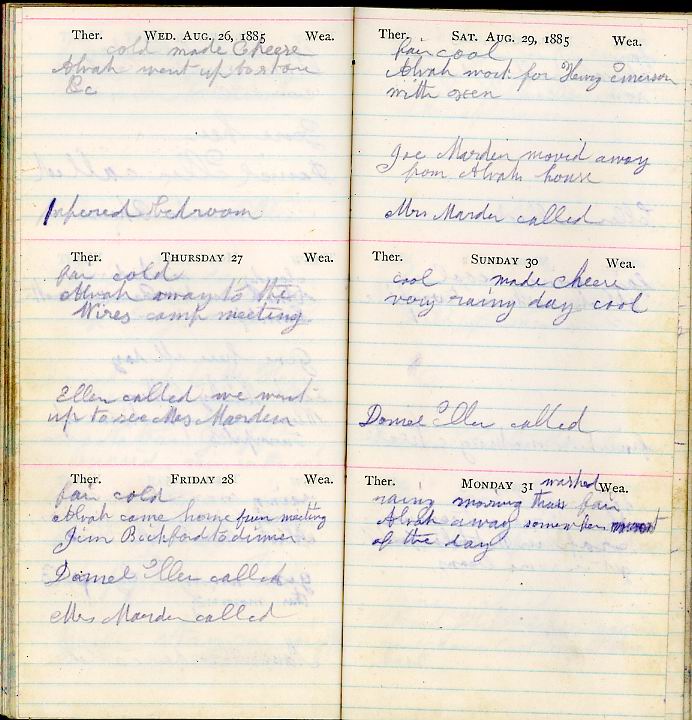 Ther. WED. AUG. 26, 1885 Wea.
cold made Cheese
Alvah went up to store
&c
papered bedroom
Ther. THURSDAY 27 Wea.
fair cold
Alvah away to the
Wires camp meeting
Ellen called we went
up to see Mrs Marden
Ther. FRIDAY 28 Wea.
fair cold
Alvah came home from meeting
Jim Bickford to dinner
Daniel Eller called
Mrs Marden called
Ther. SAT. AUG. 29, 1885 Wea.
fair cool
Alvah work for Henry Emerson
with oxen
Joe Marden movid away
from Alvahs house
Mrs Marden called
Ther. SUNDAY 30 Wea.
cool made cheese
very rainy day cool
Daniel Eller called
Ther. MONDAY 31 Wea.
washed
rainy morning than fair
Alvah away somewhere most
of the day